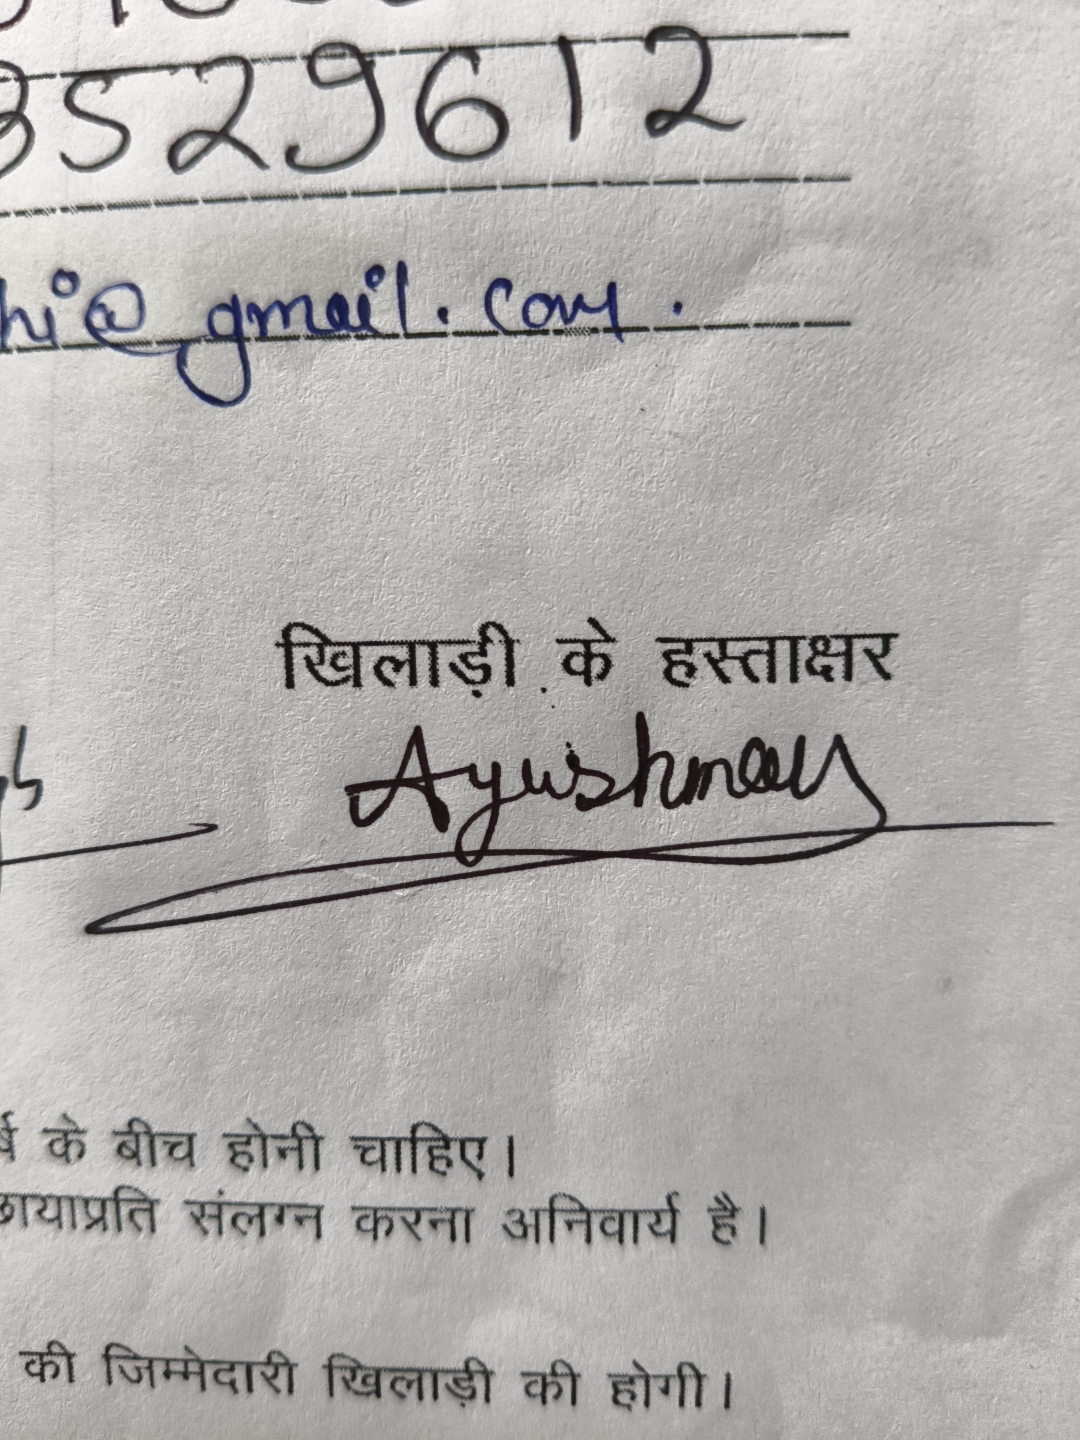 3529612
hi@gmail.com.
खिलाड़ी के हस्ताक्षर
Ayushman
के बीच होनी चाहिए।
छायाप्रति संलग्न करना अनिवार्य है।
की जिम्मेदारी खिलाड़ी की होगी।